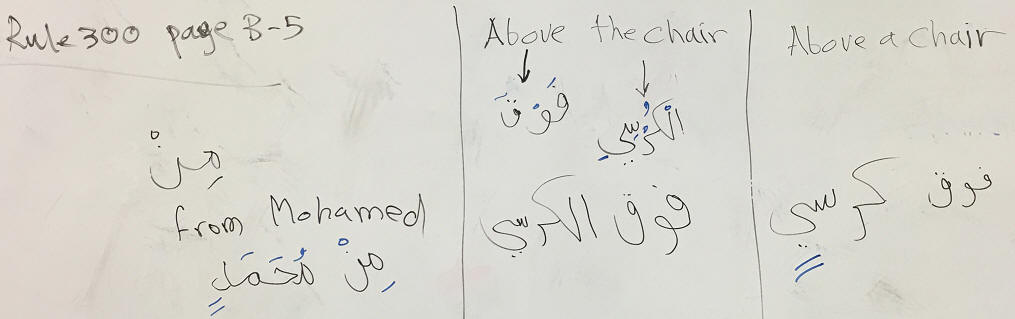 Rule 300 page B-5
مِنْ
from Mohamed
مِنْ مُحَمَدٍ
Above the chair
فَوْقَ
الْكُرْسِيِ
فوق الكرسي
Above a chair
فوق كرسيٍ